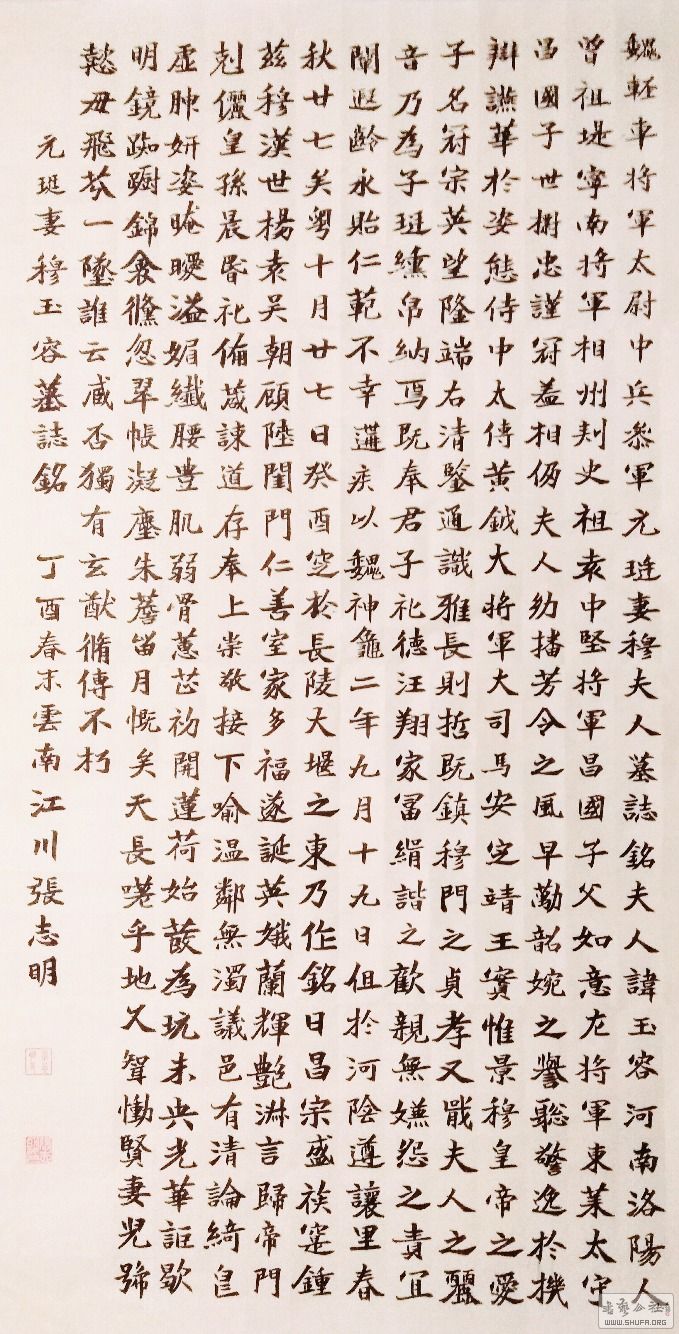 魏輕車將軍太尉中兵參軍元珽妻穆夫人墓誌銘夫人諱玉容河南洛陽人
曾祖堤寧南將軍相州刺史祖袁中堅將軍昌國子父如意左將軍東萊太守
昌國子世樹忠謹冠蓋相仍夫人幼播芳令之風早勵韶婉之譽聡警逸於機
辯讌華於姿態侍中太傅黃鉞大將軍大司馬安定靖王寔惟景穆皇帝之愛
子名冠宗英望隆端右清鑒通識雅長則哲既鎮穆門之貞孝又戢夫人之驪
音乃為子珽纁帛納焉既奉君子祀德汪翔家冨絹諧之歡親無嫌怨之責宜
闡遐齡永貽仁範不幸遘疾以魏神龜二年九月十九日俎於河陰遵讓里春
秋廿七矣粵十月廿七日癸酉窆於長陵大堰之東乃作銘曰昌宗盛族寔鍾
茲穆漢世楊袁吳朝顧陸閨門仁善室家多福遂誕英娥蘭輝艷淋言歸帝門
剋儷皇孫晨昏祀俻葴諫道存奉上崇敬接下喻温鄰無濁議邑有清論綺㫐
虛肿妍姿晻曖溢媚纖腰豊肌弱骨蕙芷初開蓮荷始蕟為玩未央光華詎歇
明鏡踟蹰錦衾儵忽翠帳凝塵朱簷留月慨矣天長嗟乎地久聟慟賢妻児號
懿毋飛芬一墬誰云臧否獨有玄猷脩傳不朽
元珽妻穆玉容墓誌銘 丁酉春末雲南江川張志明
書藝公社
WWW.SHUFA.ORG